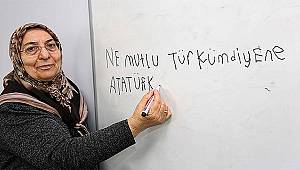 NE MUTLU TÜRKÜMDİYENE
ATATÜRK.